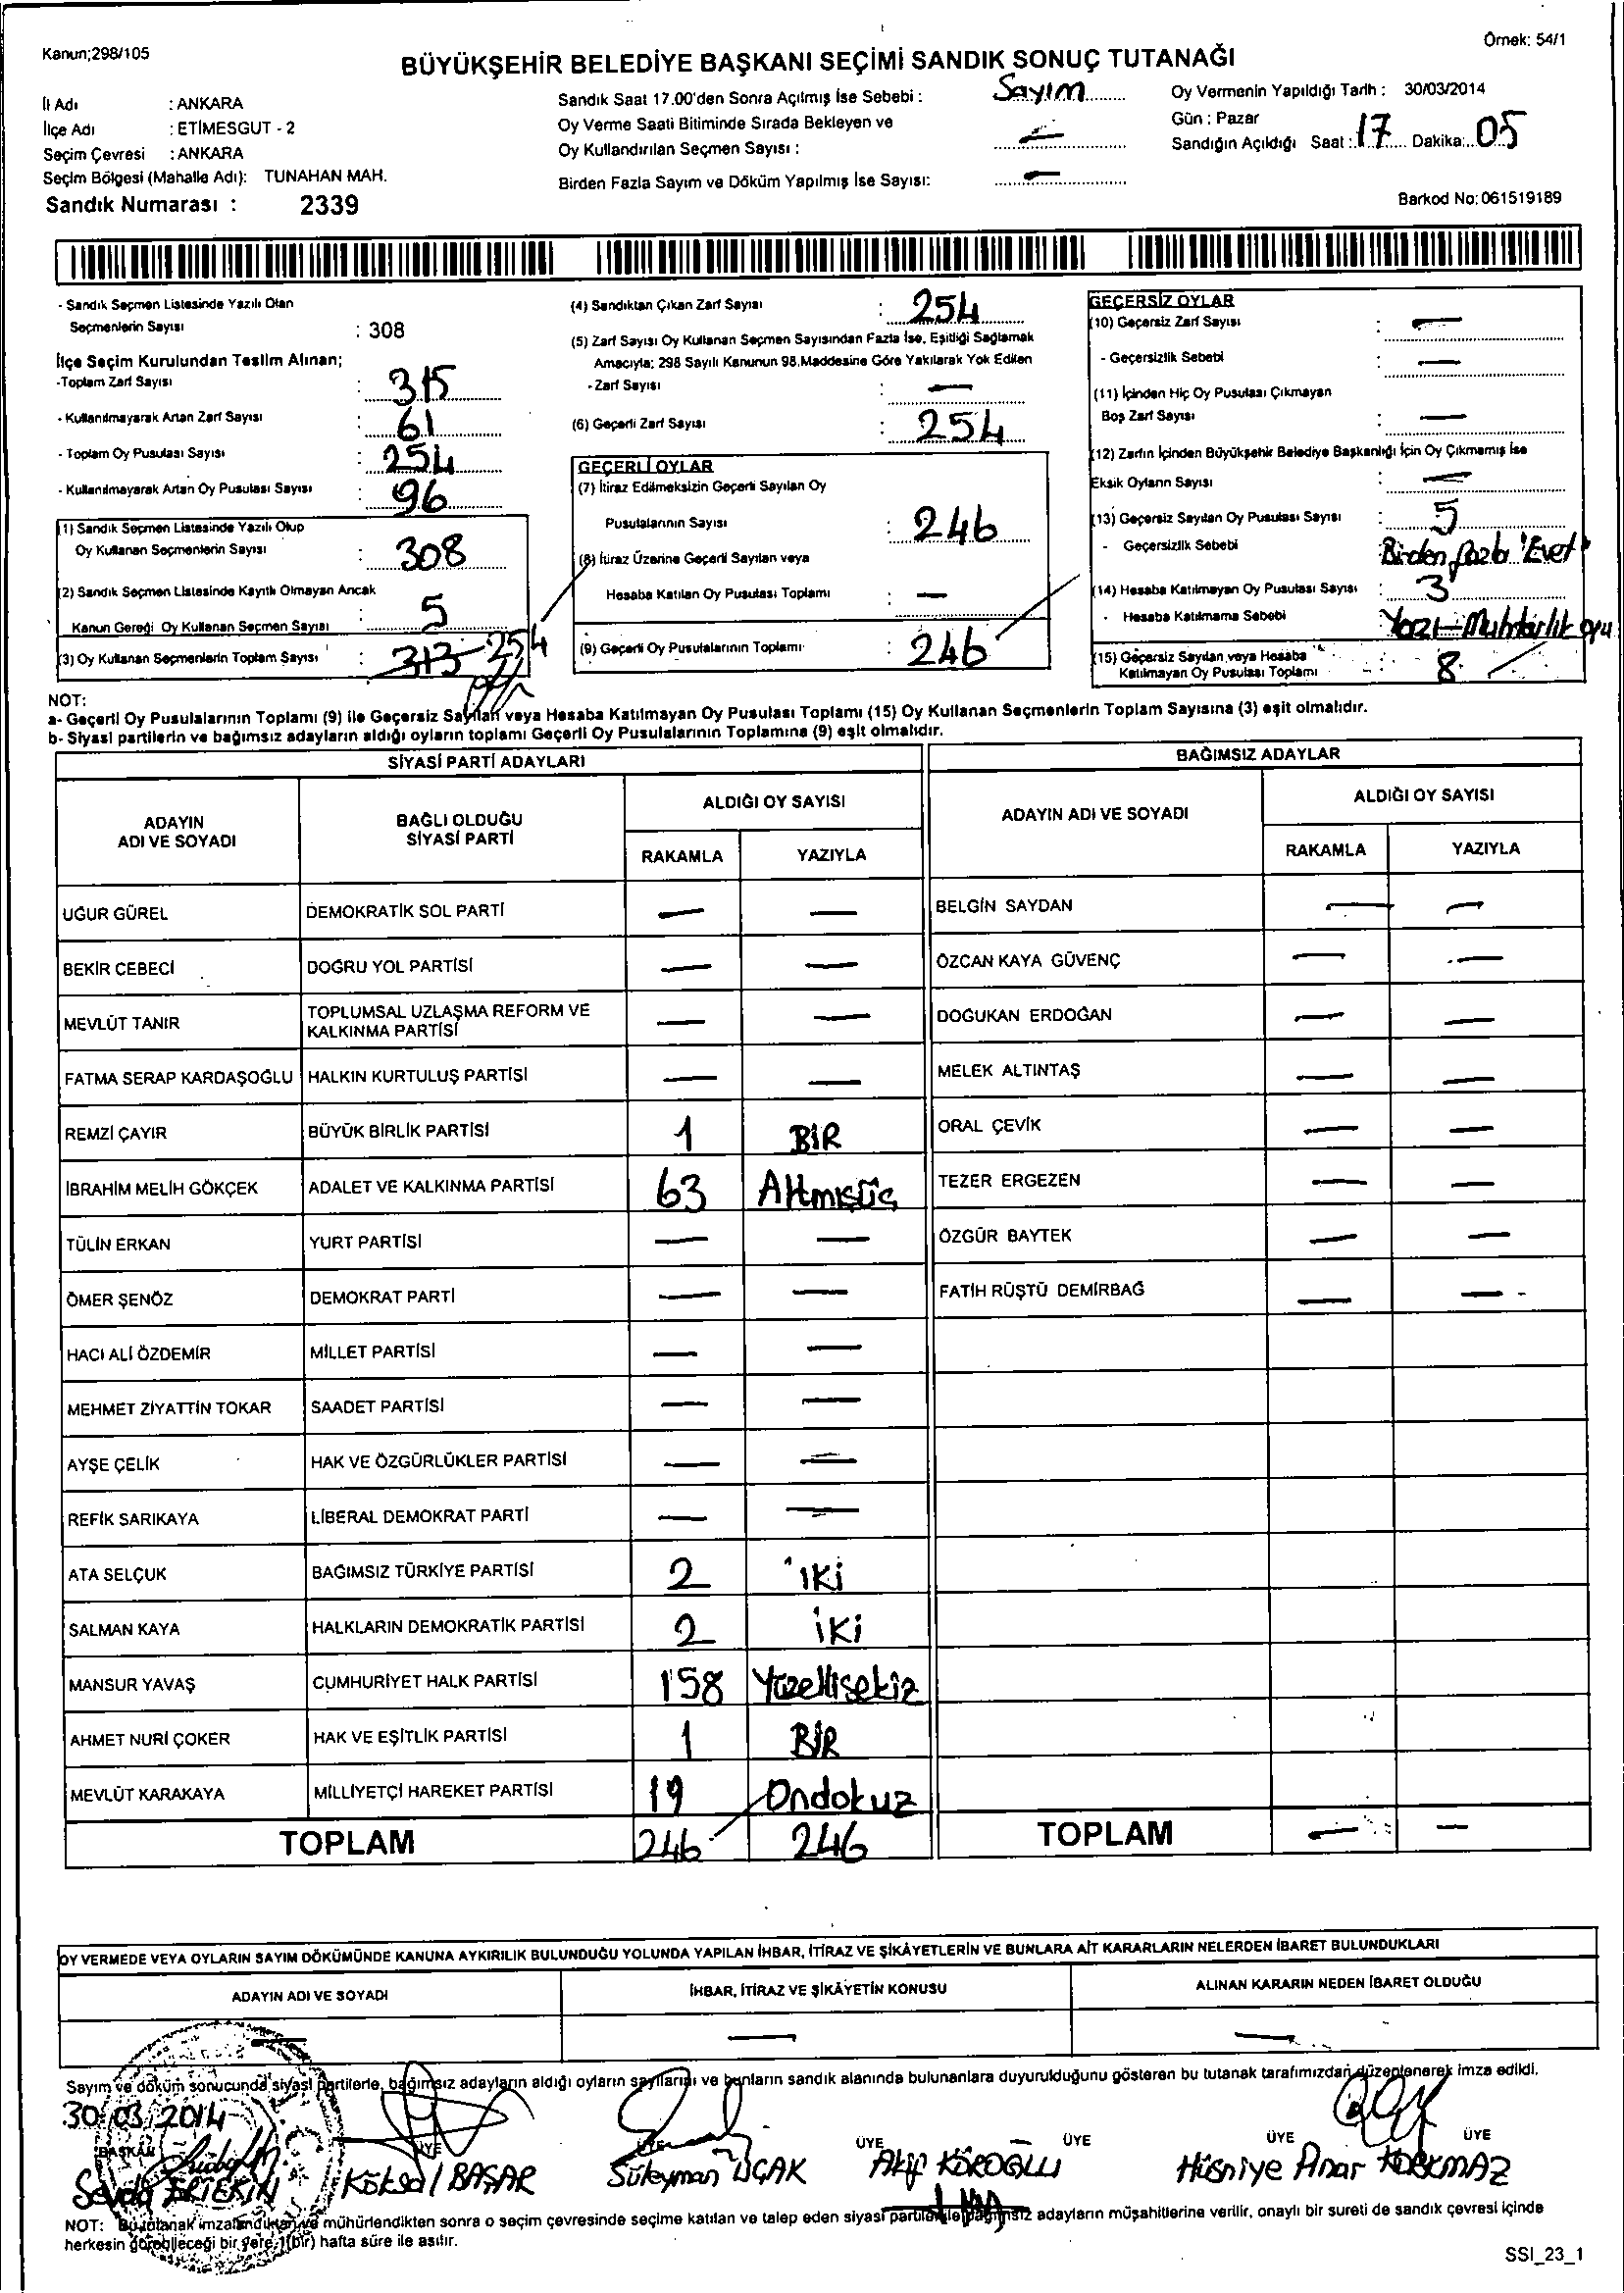 Kanun;298/105
Örnek: 54/1
BÜYÜKŞEHİR BELEDİYE BAŞKANI SEÇİMİ SANDIK SONUÇ TUTANAĞI
İl Adı : ANKARA
İlçe Adı : ETİMESGUT - 2
Seçim Çevresi : ANKARA
Seçim Bölgesi (Mahalle Adı): TUNAHAN MAH.
Sandık Numarası : 2339
Sandık Saat 17.00'den Sonra Açılmış İse Sebebi : Sayım
Oy Verme Saati Bitiminde Sırada Bekleyen ve
Oy Kullandırılan Seçmen Sayısı : —
Birden Fazla Sayım ve Döküm Yapılmış İse Sayısı: —
Oy Vermenin Yapıldığı Tarih : 30/03/2014
Gün : Pazar
Sandığın Açıldığı Saat : 17 Dakika: 05
Barkod No: 061519189
- Sandık Seçmen Listesinde Yazılı Olan
Seçmenlerin Sayısı : 308
İlçe Seçim Kurulundan Teslim Alınan;
-Toplam Zarf Sayısı : 315
- Kullanılmayarak Artan Zarf Sayısı : 61
- Toplam Oy Pusulası Sayısı : 254
- Kullanılmayarak Artan Oy Pusulası Sayısı : 96
(1) Sandık Seçmen Listesinde Yazılı Olup
Oy Kullanan Seçmenlerin Sayısı : 308
(2) Sandık Seçmen Listesinde Kayıtlı Olmayan Ancak
Kanun Gereği Oy Kullanan Seçmen Sayısı : 5
(3) Oy Kullanan Seçmenlerin Toplam Sayısı : 313 254
(4) Sandıktan Çıkan Zarf Sayısı : 254
(5) Zarf Sayısı Oy Kullanan Seçmen Sayısından Fazla İse, Eşitliği Sağlamak
Amacıyla; 298 Sayılı Kanunun 98.Maddesine Göre Yakılarak Yok Edilen
- Zarf Sayısı : —
(6) Geçerli Zarf Sayısı : 254
GEÇERLİ OYLAR
(7) İtiraz Edilmeksizin Geçerli Sayılan Oy
Pusulalarının Sayısı : 246
(8) İtiraz Üzerine Geçerli Sayılan veya
Hesaba Katılan Oy Pusulası Toplamı : —
(9) Geçerli Oy Pusulalarının Toplamı : 246
GEÇERSİZ OYLAR
(10) Geçersiz Zarf Sayısı : —
- Geçersizlik Sebebi : —
(11) İçinden Hiç Oy Pusulası Çıkmayan
Boş Zarf Sayısı : —
(12) Zarfın İçinden Büyükşehir Belediye Başkanlığı İçin Oy Çıkmamış İse
Eksik Oyların Sayısı : —
(13) Geçersiz Sayılan Oy Pusulası Sayısı : 5
- Geçersizlik Sebebi Birden fazla 'Evet'
(14) Hesaba Katılmayan Oy Pusulası Sayısı : 3
- Hesaba Katılmama Sebebi Yazı-Muhtarlık oyu
(15) Geçersiz Sayılan veya Hesaba
Katılmayan Oy Pusulası Toplamı : 8
NOT:
a- Geçerli Oy Pusulalarının Toplamı (9) ile Geçersiz Sayılan veya Hesaba Katılmayan Oy Pusulası Toplamı (15) Oy Kullanan Seçmenlerin Toplam Sayısına (3) eşit olmalıdır.
b- Siyasi partilerin ve bağımsız adayların aldığı oyların toplamı Geçerli Oy Pusulalarının Toplamına (9) eşit olmalıdır.
SİYASİ PARTİ ADAYLARI
BAĞIMSIZ ADAYLAR
ADAYIN
ADI VE SOYADI
BAĞLI OLDUĞU
SİYASİ PARTİ
ALDIĞI OY SAYISI
RAKAMLA YAZIYLA
ADAYIN ADI VE SOYADI
ALDIĞI OY SAYISI
RAKAMLA YAZIYLA
UĞUR GÜREL DEMOKRATİK SOL PARTİ — — BELGİN SAYDAN — —
BEKİR CEBECİ DOĞRU YOL PARTİSİ — — ÖZCAN KAYA GÜVENÇ — —
MEVLÜT TANIR TOPLUMSAL UZLAŞMA REFORM VE
KALKINMA PARTİSİ — — DOĞUKAN ERDOĞAN — —
FATMA SERAP KARDAŞOĞLU HALKIN KURTULUŞ PARTİSİ — — MELEK ALTINTAŞ — —
REMZİ ÇAYIR BÜYÜK BİRLİK PARTİSİ 1 BİR ORAL ÇEVİK — —
İBRAHİM MELİH GÖKÇEK ADALET VE KALKINMA PARTİSİ 63 Altmışüç TEZER ERGEZEN — —
TÜLİN ERKAN YURT PARTİSİ — — ÖZGÜR BAYTEK — —
ÖMER ŞENÖZ DEMOKRAT PARTİ — — FATİH RÜŞTÜ DEMİRBAĞ — —
HACI ALİ ÖZDEMİR MİLLET PARTİSİ — —
MEHMET ZİYATTİN TOKAR SAADET PARTİSİ — —
AYŞE ÇELİK HAK VE ÖZGÜRLÜKLER PARTİSİ — —
REFİK SARIKAYA LİBERAL DEMOKRAT PARTİ — —
ATA SELÇUK BAĞIMSIZ TÜRKİYE PARTİSİ 2 iki
SALMAN KAYA HALKLARIN DEMOKRATİK PARTİSİ 2 iki
MANSUR YAVAŞ CUMHURİYET HALK PARTİSİ 158 Yüzellisekiz
AHMET NURİ ÇOKER HAK VE EŞİTLİK PARTİSİ 1 BİR
MEVLÜT KARAKAYA MİLLİYETÇİ HAREKET PARTİSİ 19 Ondokuz
TOPLAM 246 246 TOPLAM — —
OY VERMEDE VEYA OYLARIN SAYIM DÖKÜMÜNDE KANUNA AYKIRILIK BULUNDUĞU YOLUNDA YAPILAN İHBAR, İTİRAZ VE ŞİKÂYETLERİN VE BUNLARA AİT KARARLARIN NELERDEN İBARET BULUNDUKLARI
ADAYIN ADI VE SOYADI İHBAR, İTİRAZ VE ŞİKÂYETİN KONUSU ALINAN KARARIN NEDEN İBARET OLDUĞU
— — —
Sayım ve döküm sonucunda siyasi partilerle, bağımsız adayların aldığı oyların sayılarını ve bunların sandık alanında bulunanlara duyurulduğunu gösteren bu tutanak tarafımızdan düzenlenerek imza edildi.
30.03.2014
BAŞKAN ÜYE ÜYE ÜYE ÜYE ÜYE ÜYE
Sevda Köksal BAŞAR Süleyman UÇAK Akif KÖROĞLU Hüsniye Pınar KORKMAZ
NOT: Bu tutanak imzalandıktan ve mühürlendikten sonra o seçim çevresinde seçime katılan ve talep eden siyasi partilerle bağımsız adayların müşahitlerine verilir, onaylı bir sureti de sandık çevresi içinde
herkesin görebileceği bir yere,1(bir) hafta süre ile asılır.
SSI_23_1